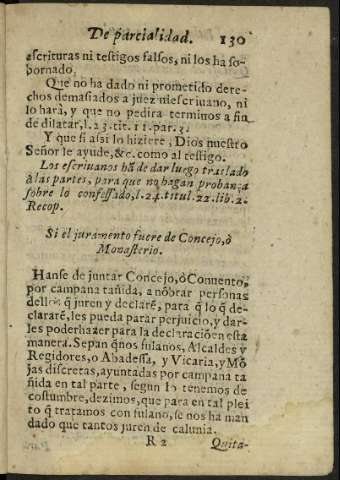 De parcialidad. 130
escrituras ni testigos falsos, ni los ha so-
bornado.
Que no ha dado ni prometido dere-
chos demasiados a juez niescriuano, ni
lo harà, y que no pedira terminos a fin
de dilatar, l. 23. tit. 11. par. 3.
Y que si assi lo hiziere, Dios nuestro
Señor le ayude, &c. como al testigo.
Los escriuanos hã de dar luego traslado
à las partes, para que no hagan probança
sobre lo confessado, l. 24. titul. 22. lib. 2.
Recop.
Si el juramento fuere de Concejo, ò
Monasterio.
Hanse de juntar Concejo, ò Conuento,
por campana tañida, a nõbrar personas
dellos q̃ juren y declarẽ, para q̃ lo q̃ de-
clararẽ, les pueda parar perjuicio, y dar-
les poder hazer para la declaraciõ en esta
manera. Sepan q̃ nos fulanos, Alcaldes y
Regidores, o Abadessa, y Vicaria, y Mõ
jas discretas, ayuntadas por campana ta
ñida en tal parte, segun lo tenemos de
costumbre, dezimos, que para en tal plei
to q̃ tratamos con fulano, se nos ha man
dado que tantos juren de calunia.
R 2 Quita-